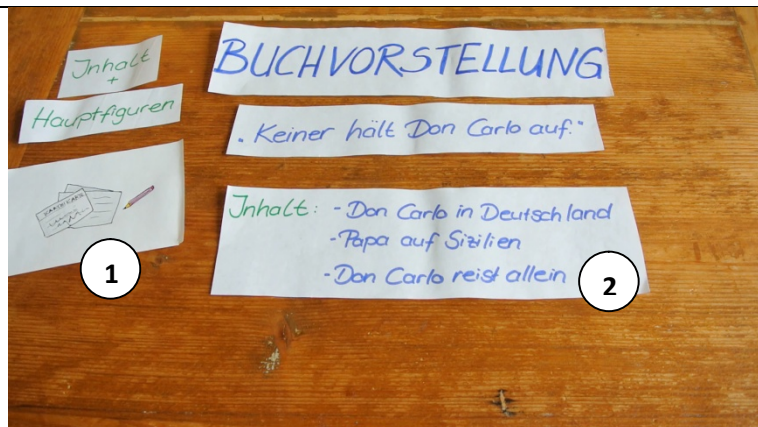 Inhalt
+
Hauptfiguren
1
BUCHVORSTELLUNG
„Keiner hält Don Carlo auf."
Inhalt: - Don Carlo in Deutschland
- Papa auf Sizilien
- Don Carlo reist allein
2